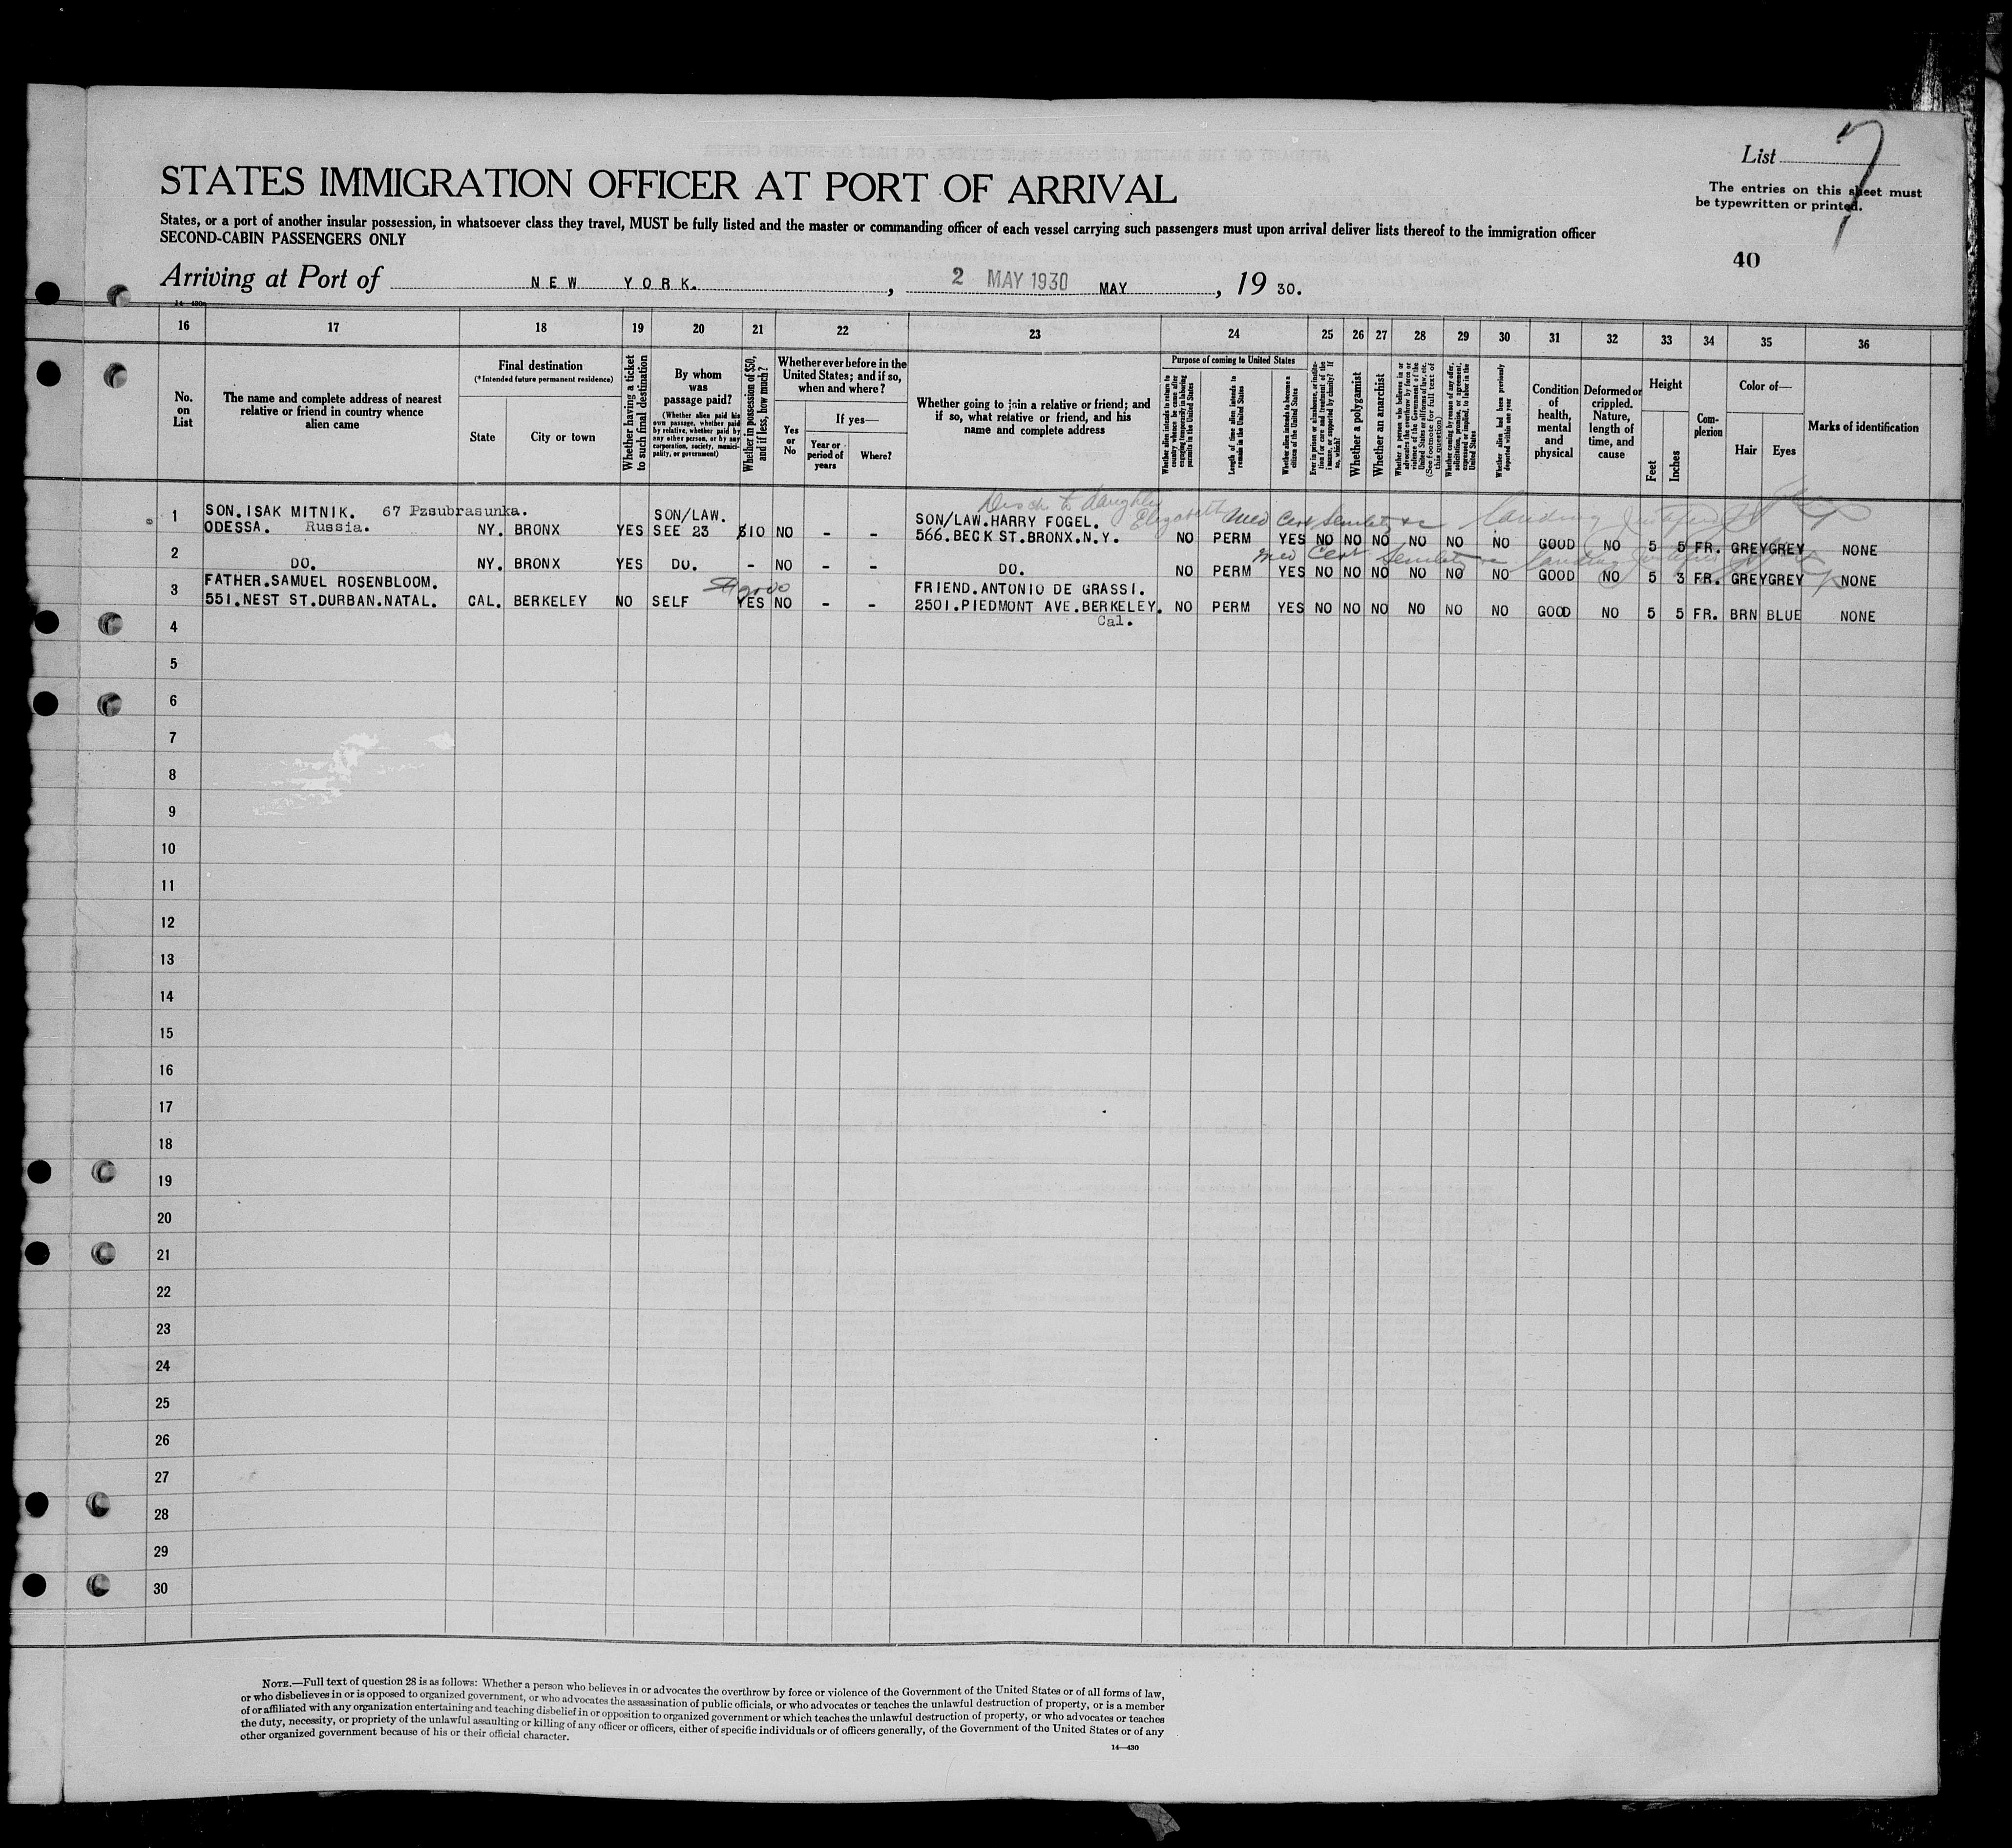 List 7
STATES IMMIGRATION OFFICER AT PORT OF ARRIVAL
The entries on this sheet must
be typewritten or printed.
States, or a port of another insular possession, in whatsoever class they travel, MUST be fully listed and the master or commanding officer of each vessel carrying such passengers must upon arrival deliver lists thereof to the immigration officer
SECOND-CABIN PASSENGERS ONLY
40
Arriving at Port of NEW YORK. , 2 MAY 1930 MAY , 19 30.
14—430
16 17 18 19 20 21 22 23 24 25 26 27 28 29 30 31 32 33 34 35 36
No. on List
The name and complete address of nearest relative or friend in country whence alien came
Final destination
(*Intended future permanent residence)
State
City or town
Whether having a ticket to such final destination
By whom was passage paid?
(Whether alien paid his own passage, whether paid by relative, whether paid by any other person, or by any corporation, society, municipality, or government)
Whether in possession of $50, and if less, how much?
Whether ever before in the United States; and if so, when and where?
Yes or No
If yes—
Year or period of years
Where?
Whether going to join a relative or friend; and if so, what relative or friend, and his name and complete address
Purpose of coming to United States
Whether alien intends to return to country whence he came after engaging temporarily in laboring pursuits in the United States
Length of time alien intends to remain in the United States
Whether alien intends to become a citizen of the United States
Ever in prison or almshouse, or institution for care and treatment of the insane, or supported by charity? If so, which?
Whether a polygamist
Whether an anarchist
Whether a person who believes in or advocates the overthrow by force or violence of the Government of the United States or all forms of law, etc. (See footnote for full text of this question)
Whether coming by reason of any offer, solicitation, promise, or agreement, expressed or implied, to labor in the United States
Whether alien had been previously deported within one year
Condition of health, mental and physical
Deformed or crippled. Nature, length of time, and cause
Height
Feet
Inches
Complexion
Color of—
Hair
Eyes
Marks of identification
to daughter Elizabeth Med Cert Senility landing
1 SON.ISAK MITNIK. 67 Pzsubrasunka. SON/LAW. SON/LAW.HARRY FOGEL.
ODESSA. Russia. NY. BRONX YES SEE 23 $10 NO - - 566.BECK ST.BRONX.N.Y. NO PERM YES NO NO NO NO NO NO GOOD NO 5 5 FR. GREY GREY NONE
Med Cert Senility landing
2 DO. NY. BRONX YES DO. - NO - - DO. NO PERM YES NO NO NO NO NO NO GOOD NO 5 3 FR. GREY GREY NONE
3 FATHER.SAMUEL ROSENBLOOM. FRIEND.ANTONIO DE GRASSI.
551.NEST ST.DURBAN.NATAL. CAL. BERKELEY NO SELF YES NO - - 2501.PIEDMONT AVE.BERKELEY. NO PERM YES NO NO NO NO NO NO GOOD NO 5 5 FR. BRN BLUE NONE
Cal.
4
5
6
7
8
9
10
11
12
13
14
15
16
17
18
19
20
21
22
23
24
25
26
27
28
29
30
NOTE.—Full text of question 28 is as follows: Whether a person who believes in or advocates the overthrow by force or violence of the Government of the United States or of all forms of law,
or who disbelieves in or is opposed to organized government, or who advocates the assassination of public officials, or who advocates or teaches the unlawful destruction of property, or is a member
of or affiliated with any organization entertaining and teaching disbelief in or opposition to organized government or which teaches the unlawful destruction of property, or who advocates or teaches
the duty, necessity, or propriety of the unlawful assaulting or killing of any officer or officers, either of specific individuals or of officers generally, of the Government of the United States or of any
other organized government because of his or their official character.
14—430